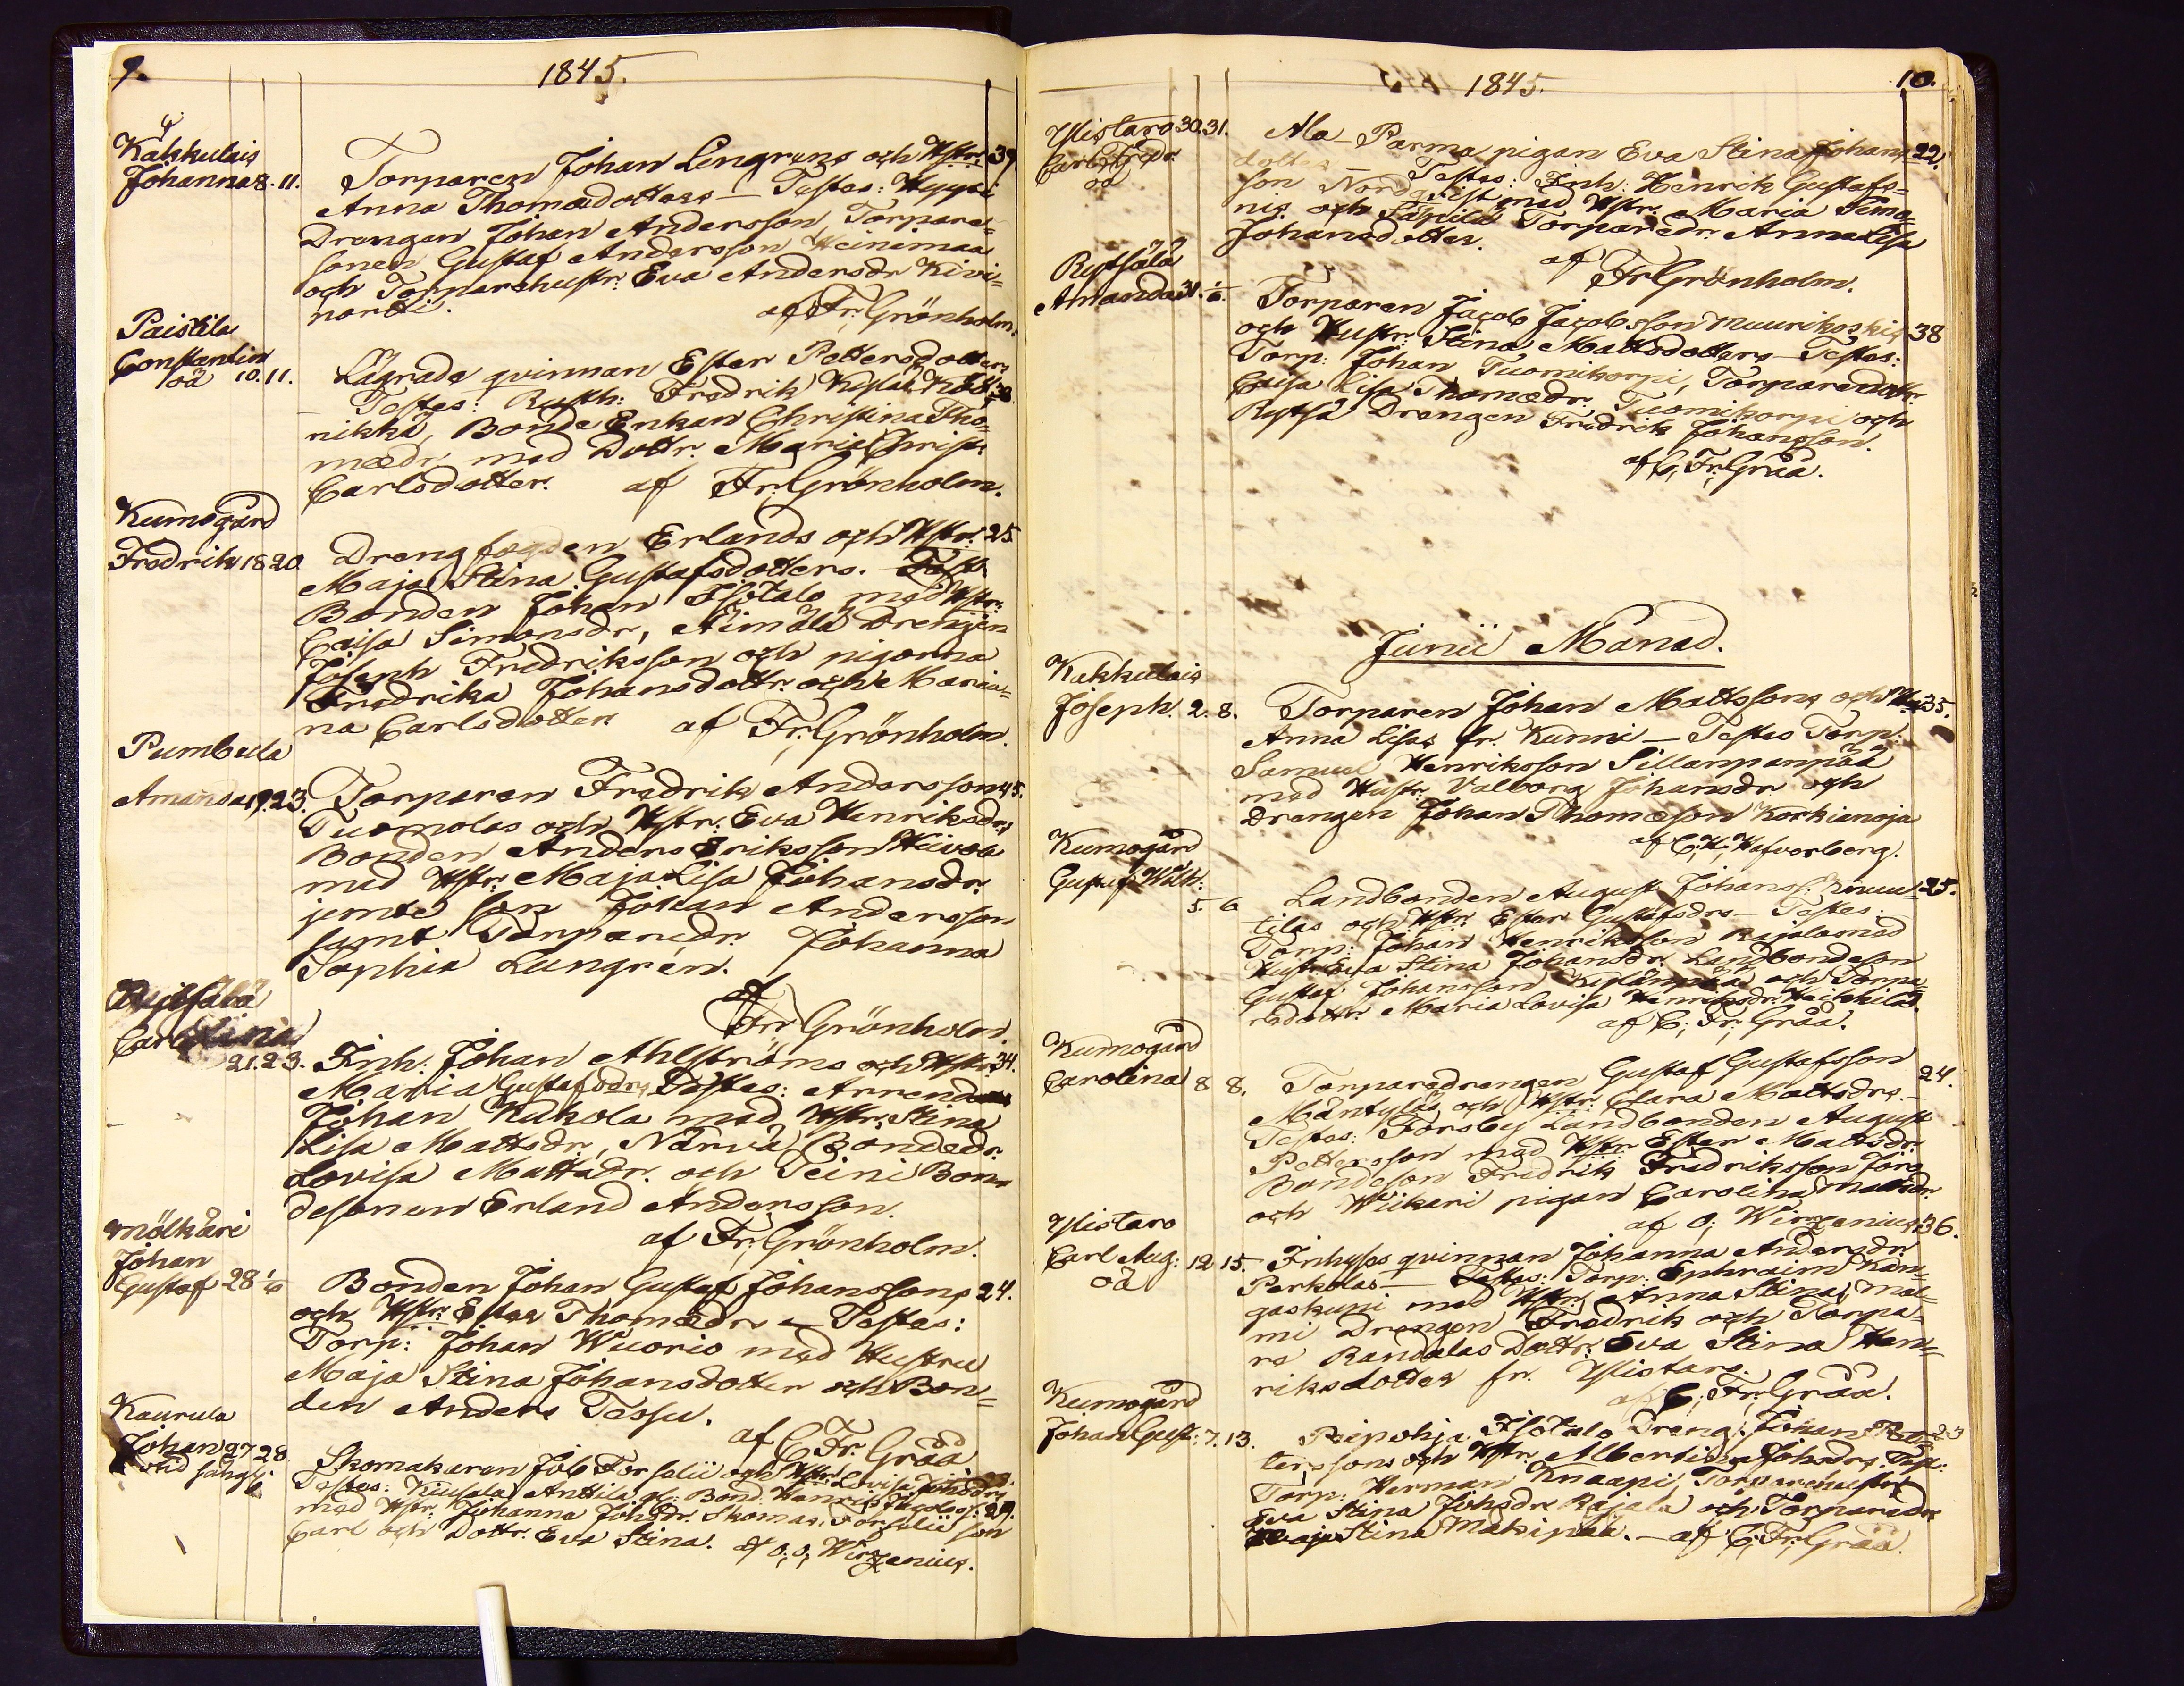 9.
1845.
Kakkulais
Johanna 8. 11.
Torparen Johan Lengrens och Hstr: 39
Anna Thomædotters — Testes: Hyppi
Drengen Johan Andersson Torpare-
sonen Gustaf Andersson Heinimaa
och Torparehustr: Eva Andersdr Kivi-
nortti.
af Fr; Grönholm.
Paistila
Constantin
oä 10. 11.
Lägrade qvinnan Ester Pettersdotters
Testes: Rusth: Fredrik
nikka, Bonde Enkan Christina Tho-
mædr med Dottr. Maria Christ:
Carlsdotter. af Fr; Grönholm.
Kumogård
Fredrik 18 20
Drengfogden Erlands och Hstr: 25
Maja Stina Gustafsdotters. — Test:
Bonden Johan Isotalo med Hstr:
Caisa Simonsdr, Äimälä Drengen
Joseph Fredriksson och pigorna
Fredrika Johansdottr. och Maria-
na Carlsdotter. af Fr; Grönholm.
Pumbula
Amanda 19. 23.
Torparen Fredrik Andersson 45.
Tuomolas och Hstr. Eva Henriksdrs
Bonden Anders Eriksson Hiivola
med Hstr. Maja Lisa Johansdr.
jemte Son Johan Andersson
samt Torparedr. Johanna
Sophia Lungrén.
af
Fr; Grönholm.
Rytsälä
Carolina
21. 23.
Inh: Johan Ahlströms och Hstr: 34.
Maria Gustafsdrs Testes: Arrend
Johan Kukola med Hstr: Stina
Lisa Mattsdr, Närvä Bondedr.
Lovisa Mattsdr. och Teini Bon-
desonen Erland Andersson.
af Fr; Grönholm.
Mölkäri
Johan
Gustaf 28 1/6
Bonden Johan Gustaf Johanssons 24.
och Hstr: Ester Thomædrs — Testes:
Torp: Johan Wuorio med Hustru
Maja Stina Johansdotter och Bon-
den Anders Tessu.
af C; Fr. Gråå
Kaurula
Johan 27 28
Skomakaren Job Forselii och Hstr: Lovisa Johsdrs
Testes: Kiusala Anttila gl: Bond: Henric Jacobss: 29.
med Hstr: Johanna Johsdr. Skomak: Forselii son
Carl och Dottr. Eva Stina. af O; O; Wirzenius.
1845.
10.
Ylistaro 30. 31.
Carl Fredr
oä
Ala-Parma pigan Eva Stina Johans- 22
dotters — Testes: Inh: Henrik Gustafs-
son Nordqvist med Hstr. Maria Simo-
nis och Säpilä Torparedr. Anna Lisa
Johansdotter.
af
Fr; Grönholm.
Rytsälä
Amanda 31. 1/6.
Torparen Jacob Jacobsson Muurikoskis 38
och Hustr: Stina Mattsdotters — Testes:
Torp: Johan Tuomikorpi, Torparedottr.
Caisa Lisa Thomædr. Tuomikorpi och
Rytsä Drengen Fredrik Johansson.
af C; Fr; Gråå.
Junii Månad.
Kakkulais
Joseph. 2. 8.
Torparen Johan Mattssons och Hu: 35.
Anna Lisas fr. Kunni — Testes Torp:
Samuel Henriksson Sillanpanpää
med Hustr. Valborg Johansdr och
Drengen Johan Thomæson Korkianoja
af C; H; Hafverberg.
Kumogård
Gustaf Wilh:
5. 6
Landbonden August Johanss: Knuu- 25.
tilas och Hstr. Ester Gustafsdrs — Testes:
Torp: Johan Henriksson Rajala med
Hustr. Eva Stina Johansdr. Landbondeson
Gustaf Johansson och Torpa-
redottr. Maria Lovisa Henriksdr. Heikkilä.
af C; Fr; Gråå.
Kumogård
Carolina 8 8.
Torparedrengen Gustaf Gustafsson 24.
Mäntyläs och Hstr: Clara Mattsdrs. —
Testes: Forsby Landbonden August
Pettersson med Hstr Ester Mattsdr.
Bondeson Fredrik Fredriksson Jöra
och Wiikari pigan Carolina Mattsdr.
af O; Wirzenius.
Ylistaro
Carl Aug: 12 15.
oä
36.
Inhyses qvinnan Johanna Andersdr.
Perkolas — Testes: Torp: Ephraim Kan-
gaskuni med Hstr. Anna Stina, Mal-
mi Drengen Fredrik och Torpa-
re Randalas Dottr. Eva Stina Hen-
riksdotter fr. Ylistaro.
af C; Fr: Gråå.
Kumogård
Johan Gust: 7. 13.
Peipohja Isotalo Dreng: Johan Pet- 23
terssons och Hstr. Albertina Johsdrs. Test:
Torp: Herman Knaapi, Torparehustr
Eva Stina Johsdr Rajala och Torparedr
Maja Stina Mäkipää. — af C; Fr; Gråå.